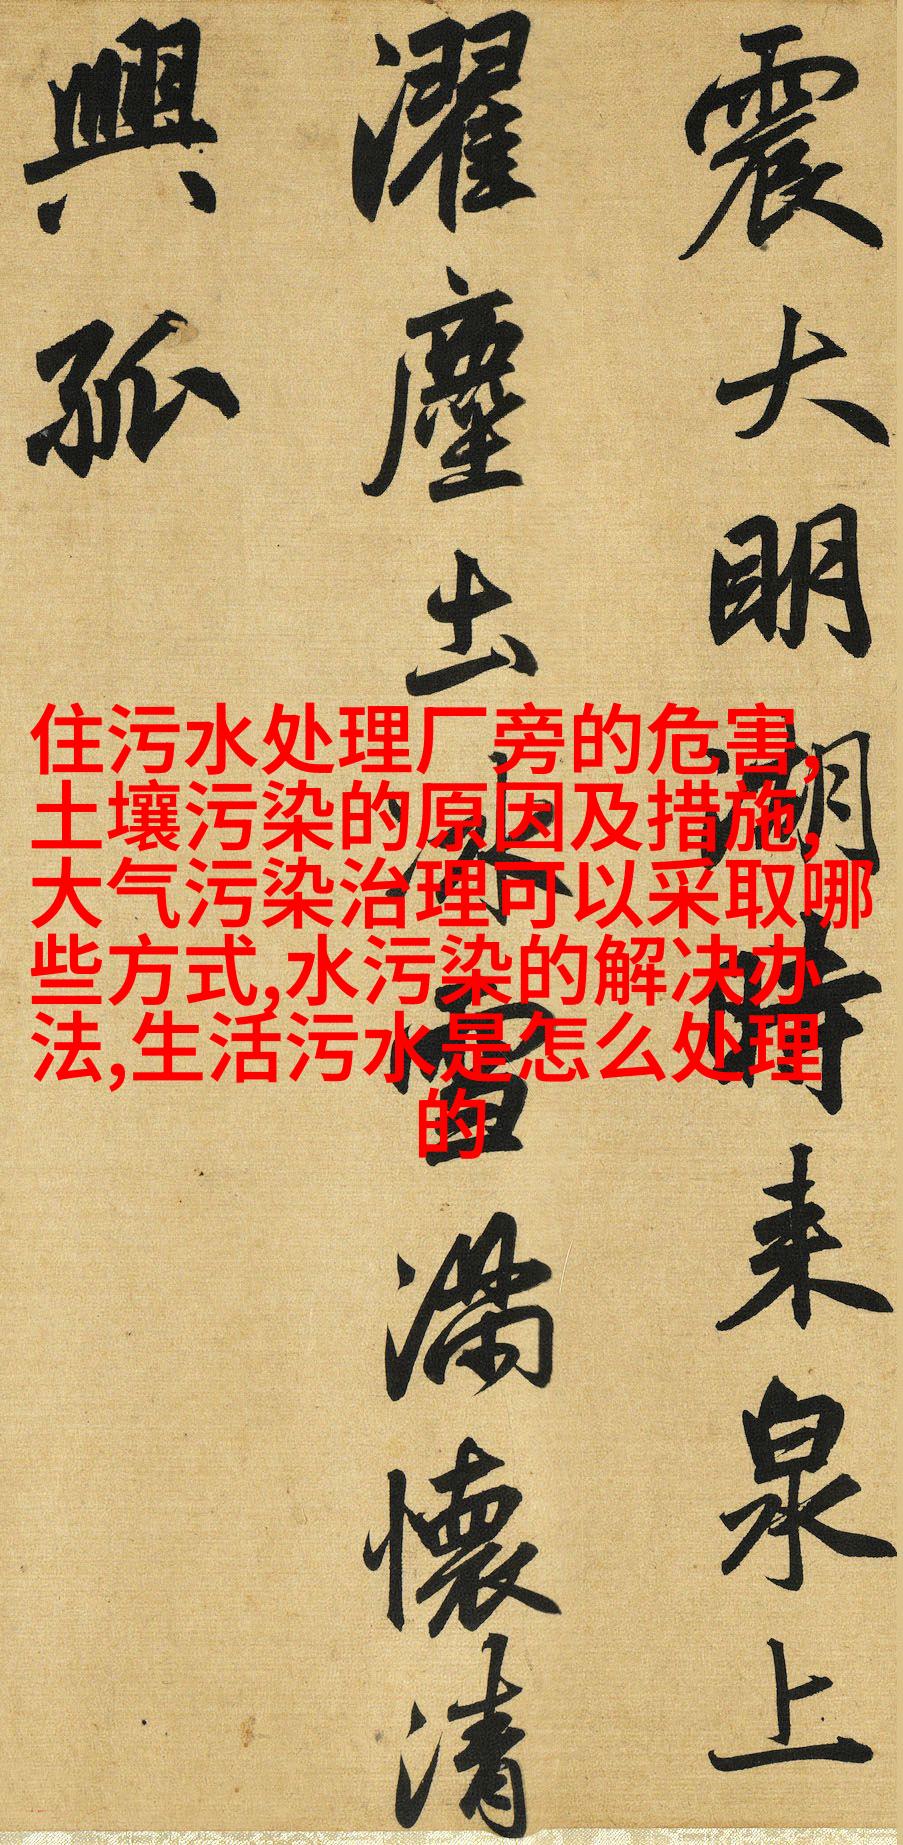 震大明湖時来泉上
濯塵土冰雪满懷清
興孤
住污水处理厂旁的危害,
土壤污染的原因及措施,
大气污染治理可以采取哪
些方式,水污染的解决办
法,生活污水是怎么处理
的